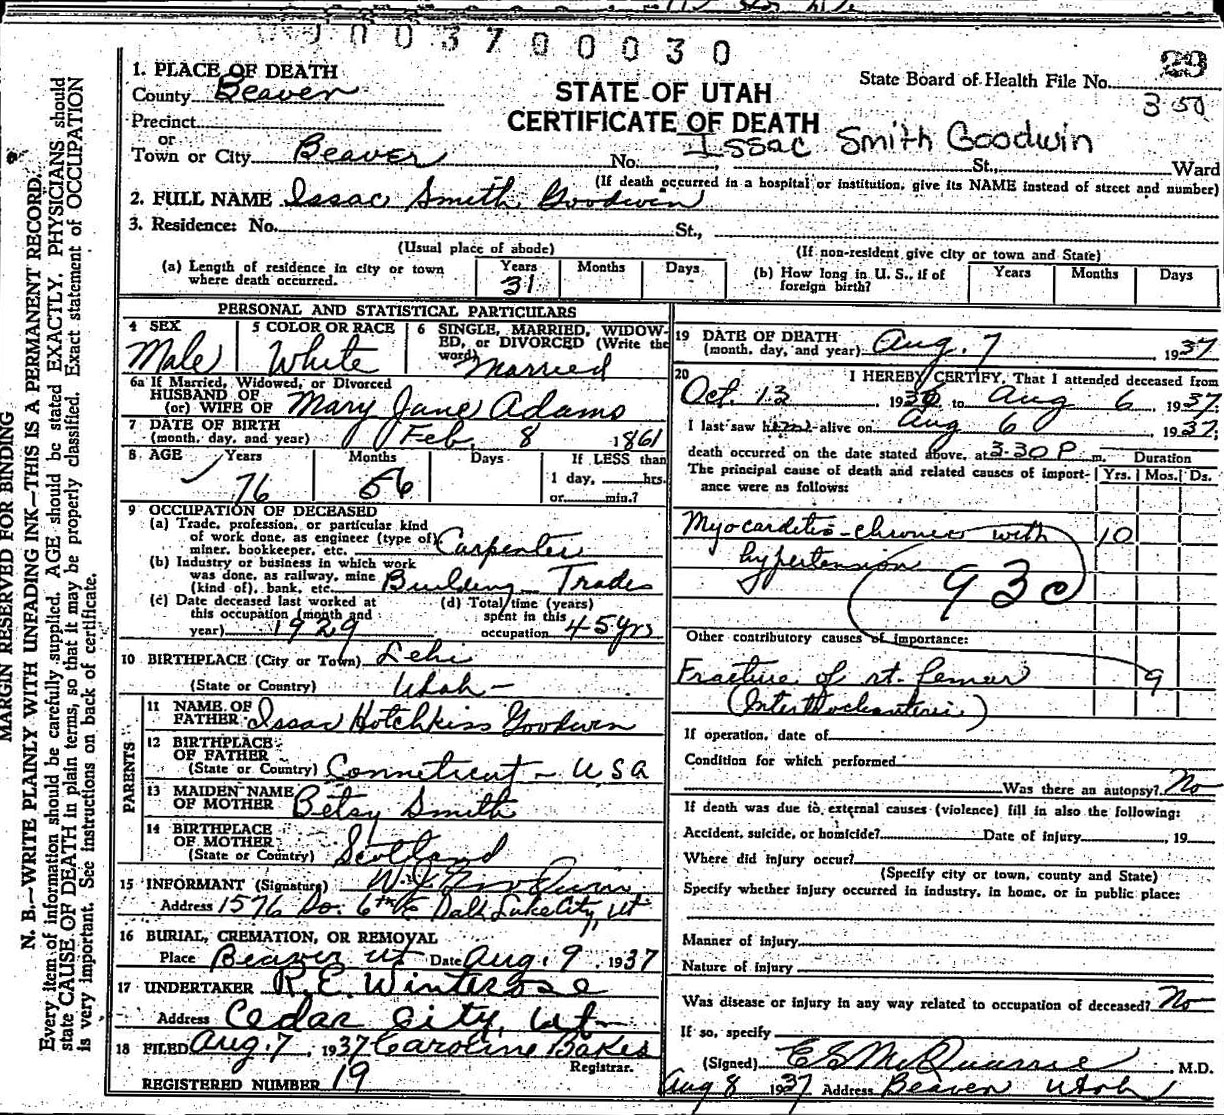 0 0 3 7 0 0 0 3 0
1. PLACE OF DEATH
County Beaver
Precinct
or
Town or City Beaver
STATE OF UTAH
CERTIFICATE OF DEATH
State Board of Health File No. 23
350
Issac Smith Goodwin
No. St., Ward
(If death occurred in a hospital or institution, give its NAME instead of street and number)
2. FULL NAME Issac Smith Goodwin
3. Residence: No. St.,
(Usual place of abode) (If non-resident give city or town and State)
(a) Length of residence in city or town where death occurred. Years 31 Months Days
(b) How long in U. S., if of foreign birth? Years Months Days
PERSONAL AND STATISTICAL PARTICULARS
4 SEX Male
5 COLOR OR RACE White
6 SINGLE, MARRIED, WIDOWED, or DIVORCED (Write the word) Married
6a If Married, Widowed, or Divorced
HUSBAND OF
(or) WIFE OF Mary Jane Adams
7 DATE OF BIRTH
(month, day, and year) Feb. 8 1861
8 AGE Years 76 Months 6 Days If LESS than
1 day, hrs.
or min.?
9 OCCUPATION OF DECEASED
(a) Trade, profession, or particular kind
of work done, as engineer (type of)
miner, bookkeeper, etc. Carpenter
(b) Industry or business in which work
was done, as railway, mine
(kind of), bank, etc. Building Trades
(c) Date deceased last worked at
this occupation (month and
year) 1929
(d) Total time (years)
spent in this
occupation 45 yrs
10 BIRTHPLACE (City or Town) Lehi
(State or Country) Utah
PARENTS
11 NAME OF
FATHER Issac Hotchkiss Goodwin
12 BIRTHPLACE
OF FATHER
(State or Country) Conneticut - USA
13 MAIDEN NAME
OF MOTHER Betsy Smith
14 BIRTHPLACE
OF MOTHER
(State or Country) Scotland
15 INFORMANT (Signature)
Address 1576 So. 6th E Salt Lake City, Ut
16 BURIAL, CREMATION, OR REMOVAL
Place Beaver Ut Date Aug. 9, 1937
17 UNDERTAKER R.E. Winterose
Address Cedar City, Ut
18 FILED Aug. 7, 1937 Caroline Bakes
Registrar.
REGISTERED NUMBER 19
19 DATE OF DEATH
(month, day, and year) Aug. 7 1937
20 I HEREBY CERTIFY, That I attended deceased from
Oct. 13 193 to Aug 6, 1937;
I last saw him alive on Aug 6, 1937;
death occurred on the date stated above, at 3:30 P m. Duration
The principal cause of death and related causes of importance were as follows: Yrs. Mos. Ds.
Myocarditis - chronic with 10
hypertension
93c
Other contributory causes of importance:
Fracture of rt. femur 9
(Intertrochanteric)
If operation, date of
Condition for which performed
Was there an autopsy? No
If death was due to external causes (violence) fill in also the following:
Accident, suicide, or homicide? Date of injury 19
Where did injury occur?
(Specify city or town, county and State)
Specify whether injury occurred in industry, in home, or in public place:
Manner of injury
Nature of injury
Was disease or injury in any way related to occupation of deceased? No
If so, specify
(Signed) E S McQuarrie, M.D.
Aug 8 1937 Address Beaver Utah
MARGIN RESERVED FOR BINDING
N. B.—WRITE PLAINLY WITH UNFADING INK—THIS IS A PERMANENT RECORD.
Every item of information should be carefully supplied. AGE should be stated EXACTLY. PHYSICIANS should
state CAUSE OF DEATH in plain terms, so that it may be properly classified. Exact statement of OCCUPATION
is very important. See instructions on back of certificate.